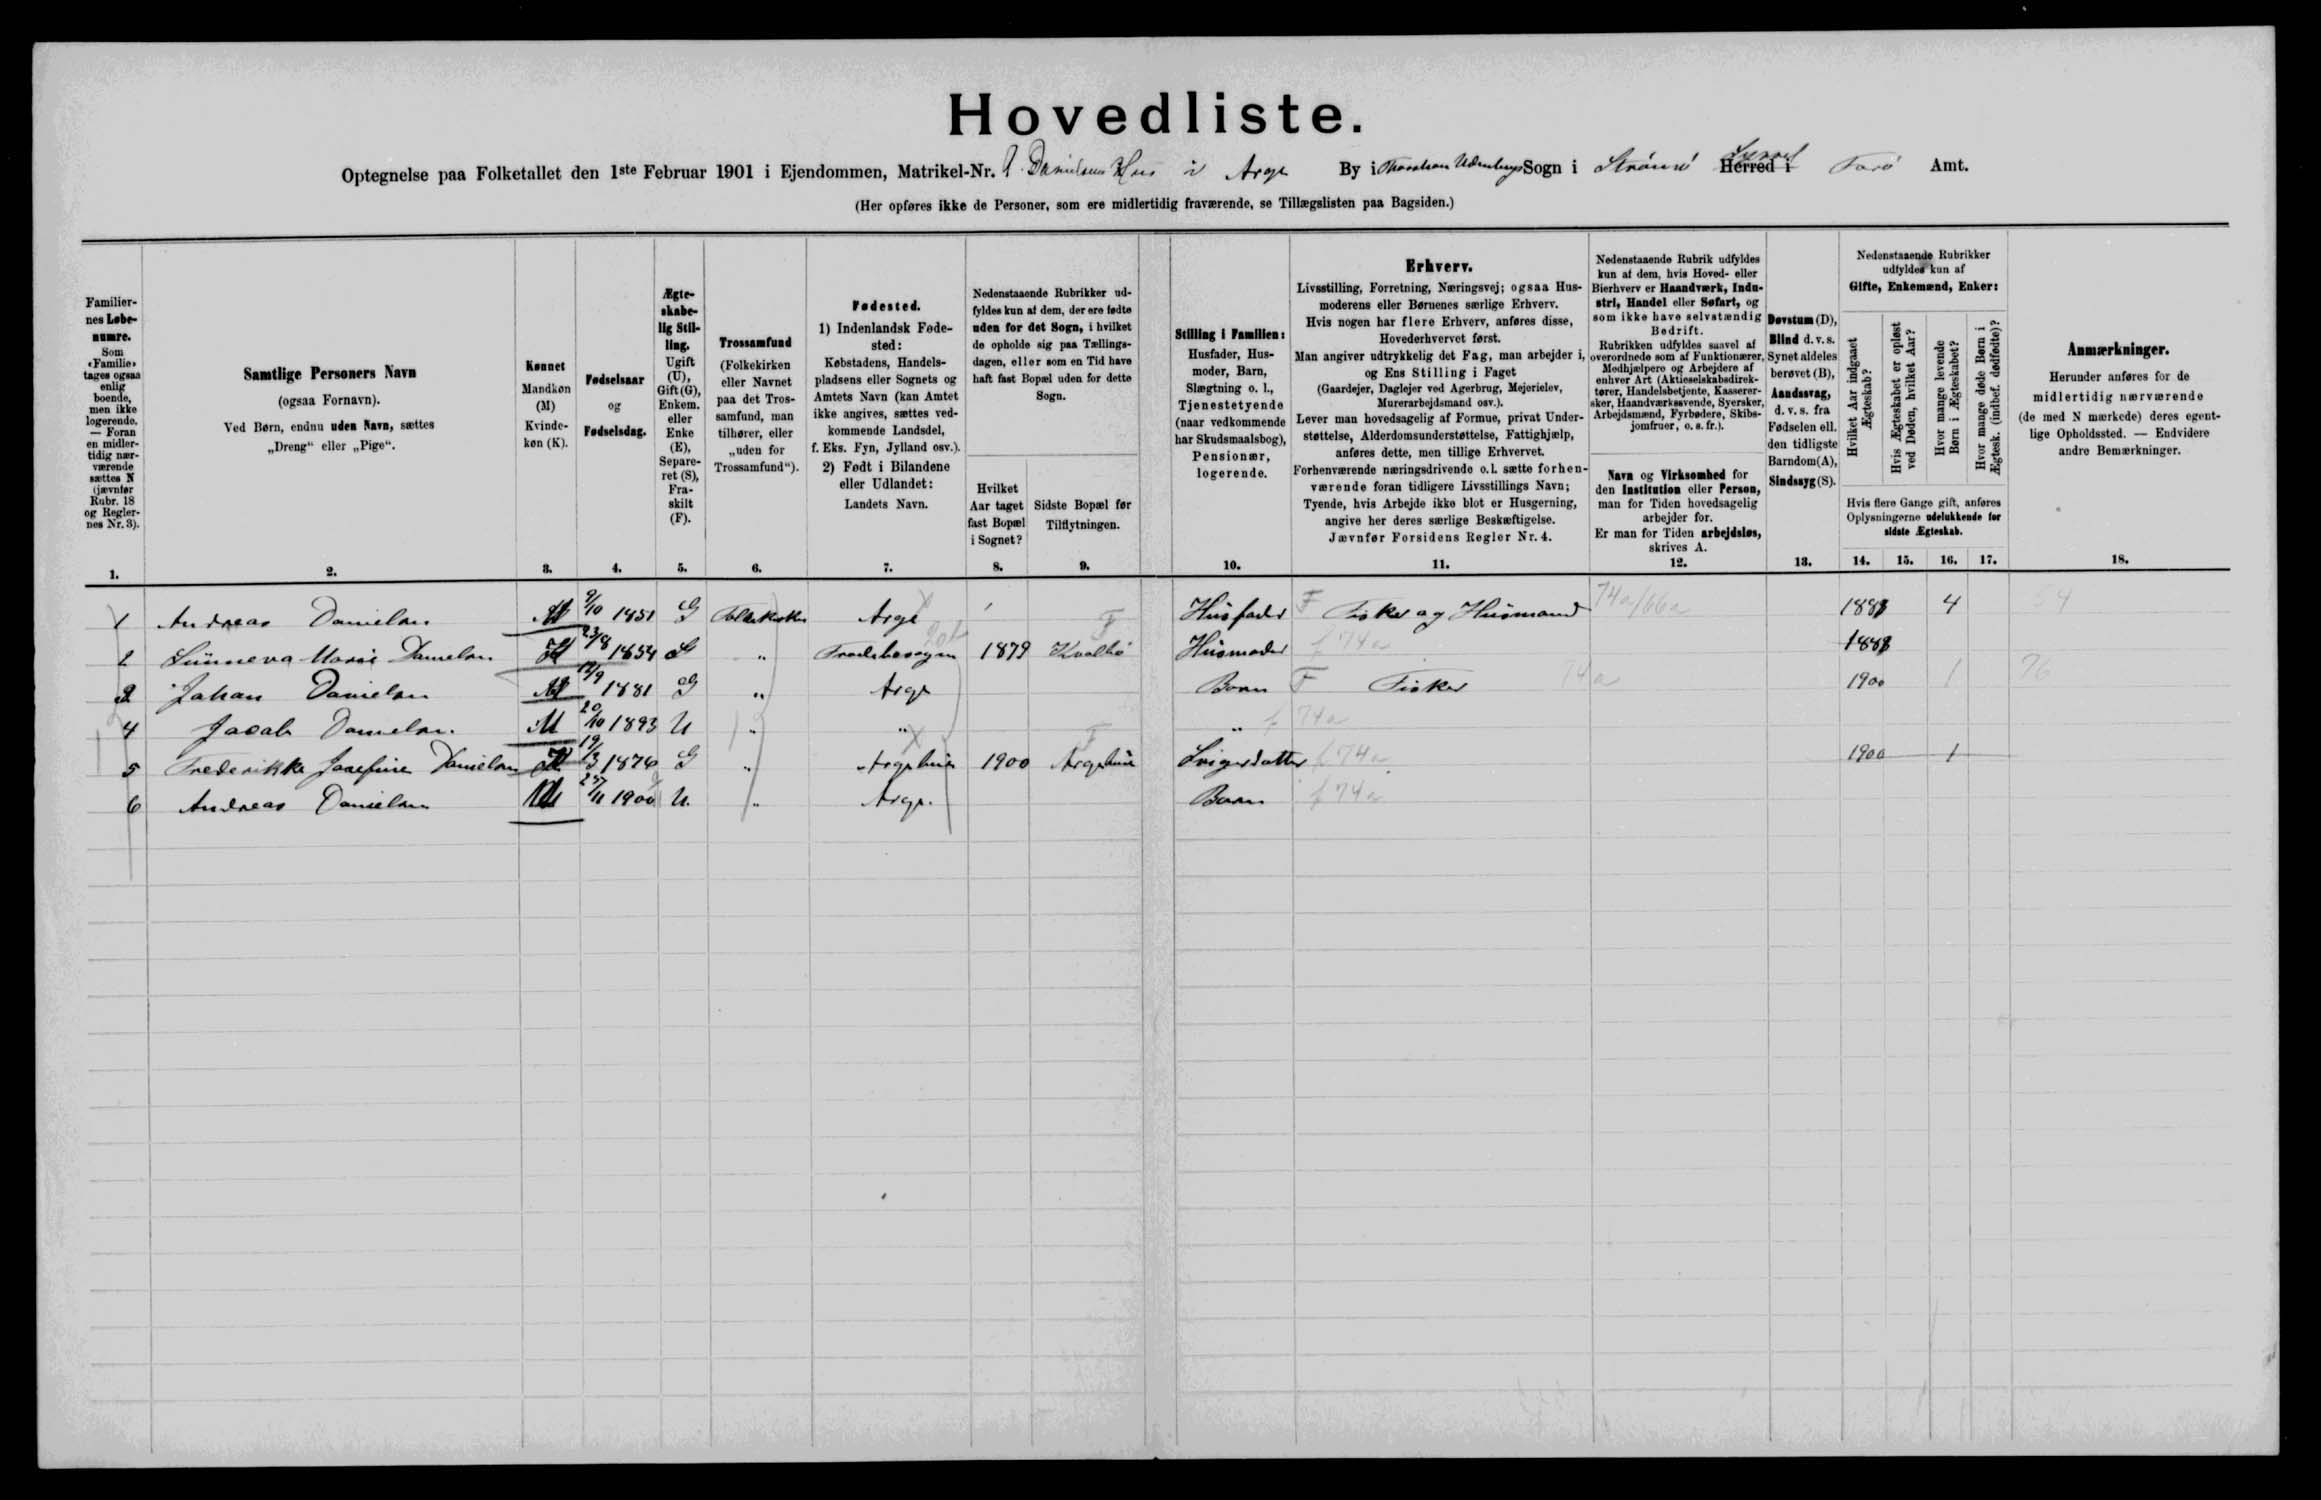 Hovedliste.
Optegnelse paa Folketallet den 1ste Februar 1901 i Ejendommen, Matrikel-Nr. Danielsens Hus i Arge By i Thorshavn Udenbugs Sogn i Strømø Herred i Færø Amt.
(Her opføres ikke de Personer, som ere midlertidig fraværende, se Tillægslisten paa Bagsiden.)
Familiernes Løbenumre.
Som «Familie» tages ogsaa enlig boende, men ikke logerende. — Foran en midlertidig nærværende sættes N (jævnfør Rubr. 18 og Reglernes Nr. 3).
Samtlige Personers Navn
(ogsaa Fornavn).
Ved Børn, endnu uden Navn, sættes
„Dreng“ eller „Pige“.
Kønnet
Mandkøn (M)
Kvindekøn (K).
Fødselsaar
og
Fødselsdag.
Ægteskabelig Stilling.
Ugift (U), Gift (G), Enkem. eller Enke (E), Separeret (S), Fraskilt (F).
Trossamfund
(Folkekirken eller Navnet paa det Trossamfund, man tilhører, eller „uden for Trossamfund“).
Fødested.
1) Indenlandsk Fødested:
Købstadens, Handelspladsens eller Sognets og Amtets Navn (kan Amtet ikke angives, sættes vedkommende Landsdel, f. Eks. Fyn, Jylland osv.).
2) Født i Bilandene eller Udlandet:
Landets Navn.
Nedenstaaende Rubrikker udfyldes kun af dem, der ere fødte uden for det Sogn, i hvilket de opholde sig paa Tællingsdagen, eller som en Tid have haft fast Bopæl uden for dette Sogn.
Hvilket Aar taget fast Bopæl i Sognet?
Sidste Bopæl før Tilflytningen.
Stilling i Familien:
Husfader, Husmoder, Barn, Slægtning o. l., Tjenestetyende (naar vedkommende har Skudsmaalsbog), Pensionær, logerende.
Erhverv.
Livsstilling, Forretning, Næringsvej; ogsaa Husmoderens eller Børnenes særlige Erhverv.
Hvis nogen har flere Erhverv, anføres disse, Hovederhvervet først.
Man angiver udtrykkelig det Fag, man arbejder i, og Ens Stilling i Faget
(Gaardejer, Daglejer ved Agerbrug, Mejerielev, Murerarbejdsmand osv.).
Lever man hovedsagelig af Formue, privat Understøttelse, Alderdomsunderstøttelse, Fattighjælp, anføres dette, men tillige Erhvervet.
Forhenværende næringsdrivende o. l. sætte forhenværende foran tidligere Livsstillings Navn;
Tyende, hvis Arbejde ikke blot er Husgerning, angive her deres særlige Beskæftigelse.
Jævnfør Forsidens Regler Nr. 4.
Nedenstaaende Rubrik udfyldes kun af dem, hvis Hoved- eller Bierhverv er Haandværk, Industri, Handel eller Søfart, og som ikke have selvstændig Bedrift.
Rubrikken udfyldes saavel af overordnede som af Funktionærer, Medhjælpere og Arbejdere af enhver Art (Aktieselskabsdirektører, Handelsbetjente, Kasserersker, Haandværkssvende, Syersker, Arbejdsmænd, Fyrbødere, Skibsjomfruer, o. s. fr.).
Navn og Virksomhed for den Institution eller Person, man for Tiden hovedsagelig arbejder for.
Er man for Tiden arbejdsløs, skrives A.
Døvstum (D), Blind d. v. s. Synet aldeles berøvet (B), Aandssvag, d. v. s. fra Fødselen ell. den tidligste Barndom (A), Sindssyg (S).
Nedenstaaende Rubrikker udfyldes kun af
Gifte, Enkemænd, Enker:
Hvilket Aar indgaaet Ægteskab?
Hvis Ægteskabet er opløst ved Døden, hvilket Aar?
Hvor mange levende Børn i Ægteskabet?
Hvor mange døde Børn i Ægtesk. (indbef. dødfødte)?
Hvis flere Gange gift, anføres Oplysningerne udelukkende for sidste Ægteskab.
Anmærkninger.
Herunder anføres for de midlertidig nærværende (de med N mærkede) deres egentlige Opholdssted. — Endvidere andre Bemærkninger.
1. 2. 3. 4. 5. 6. 7. 8. 9. 10. 11. 12. 13. 14. 15. 16. 17. 18.
1 Andreas Danielsen M 9/10 1851 G Folkekirken Arge Husfader F Fisker og Husmand 74a/66a 4 54
2 Sünneva Marie Danielsen K 23/8 1854 G „ 1879 Kvalbø F Husmoder f 74a
3 Johan Danielsen M 1881 G „ Arge Barn F Fisker 74a 1900 1 76
4 Jacob Danielsen M 20/10 1893 U „ „ „ f 74a
5 Frederikke Josefine Danielsen K 19/3 1876 G „ Argehuse 1900 Argehuse F Svigerdatter f 74a 1900 1
6 Andreas Danielsen M 27/11 1900 U. „ Arge. Barn f 74a